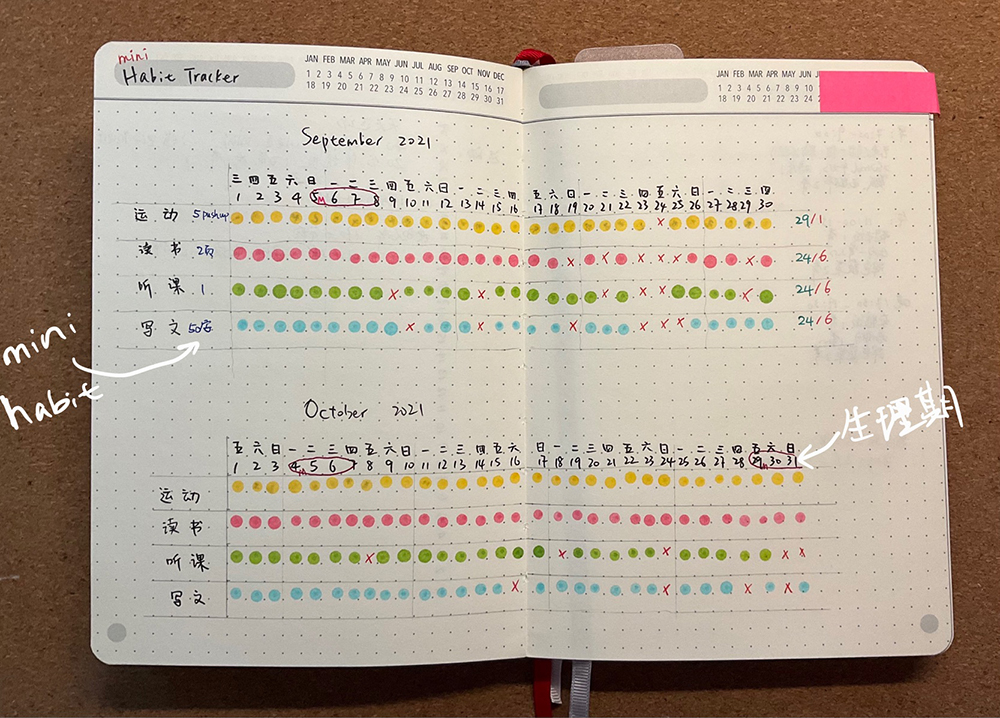 mini
Habit Tracker
JAN FEB MAR APR MAY JUN JUL AUG SEP OCT NOV DEC
1 2 3 4 5 6 7 8 9 10 11 12 13 14 15 16 17
18 19 20 21 22 23 24 25 26 27 28 29 30 31
JAN FEB MAR APR MAY JUN
1 2 3 4 5 6 7 8 9 10
18 19 20 21 22 23 24 25 26 27
September 2021
三 四 五 六 日 一 二 三 四 五 六 日 一 二 三 四 五 六 日 一 二 三 四 五 六 日 一 二 三 四
1 2 3 4 5 6 7 8 9 10 11 12 13 14 15 16 17 18 19 20 21 22 23 24 25 26 27 28 29 30
M
运动 5 pushup 29/1
读书 2页 24/6
听课 1 24/6
写文 50字 24/6
mini
habit
October 2021
生理期
五 六 日 一 二 三 四 五 六 日 一 二 三 四 五 六 日 一 二 三 四 五 六 日 一 二 三 四 五 六 日
1 2 3 4 5 6 7 8 9 10 11 12 13 14 15 16 17 18 19 20 21 22 23 24 25 26 27 28 29 30 31
M M
运动
读书
听课
写文